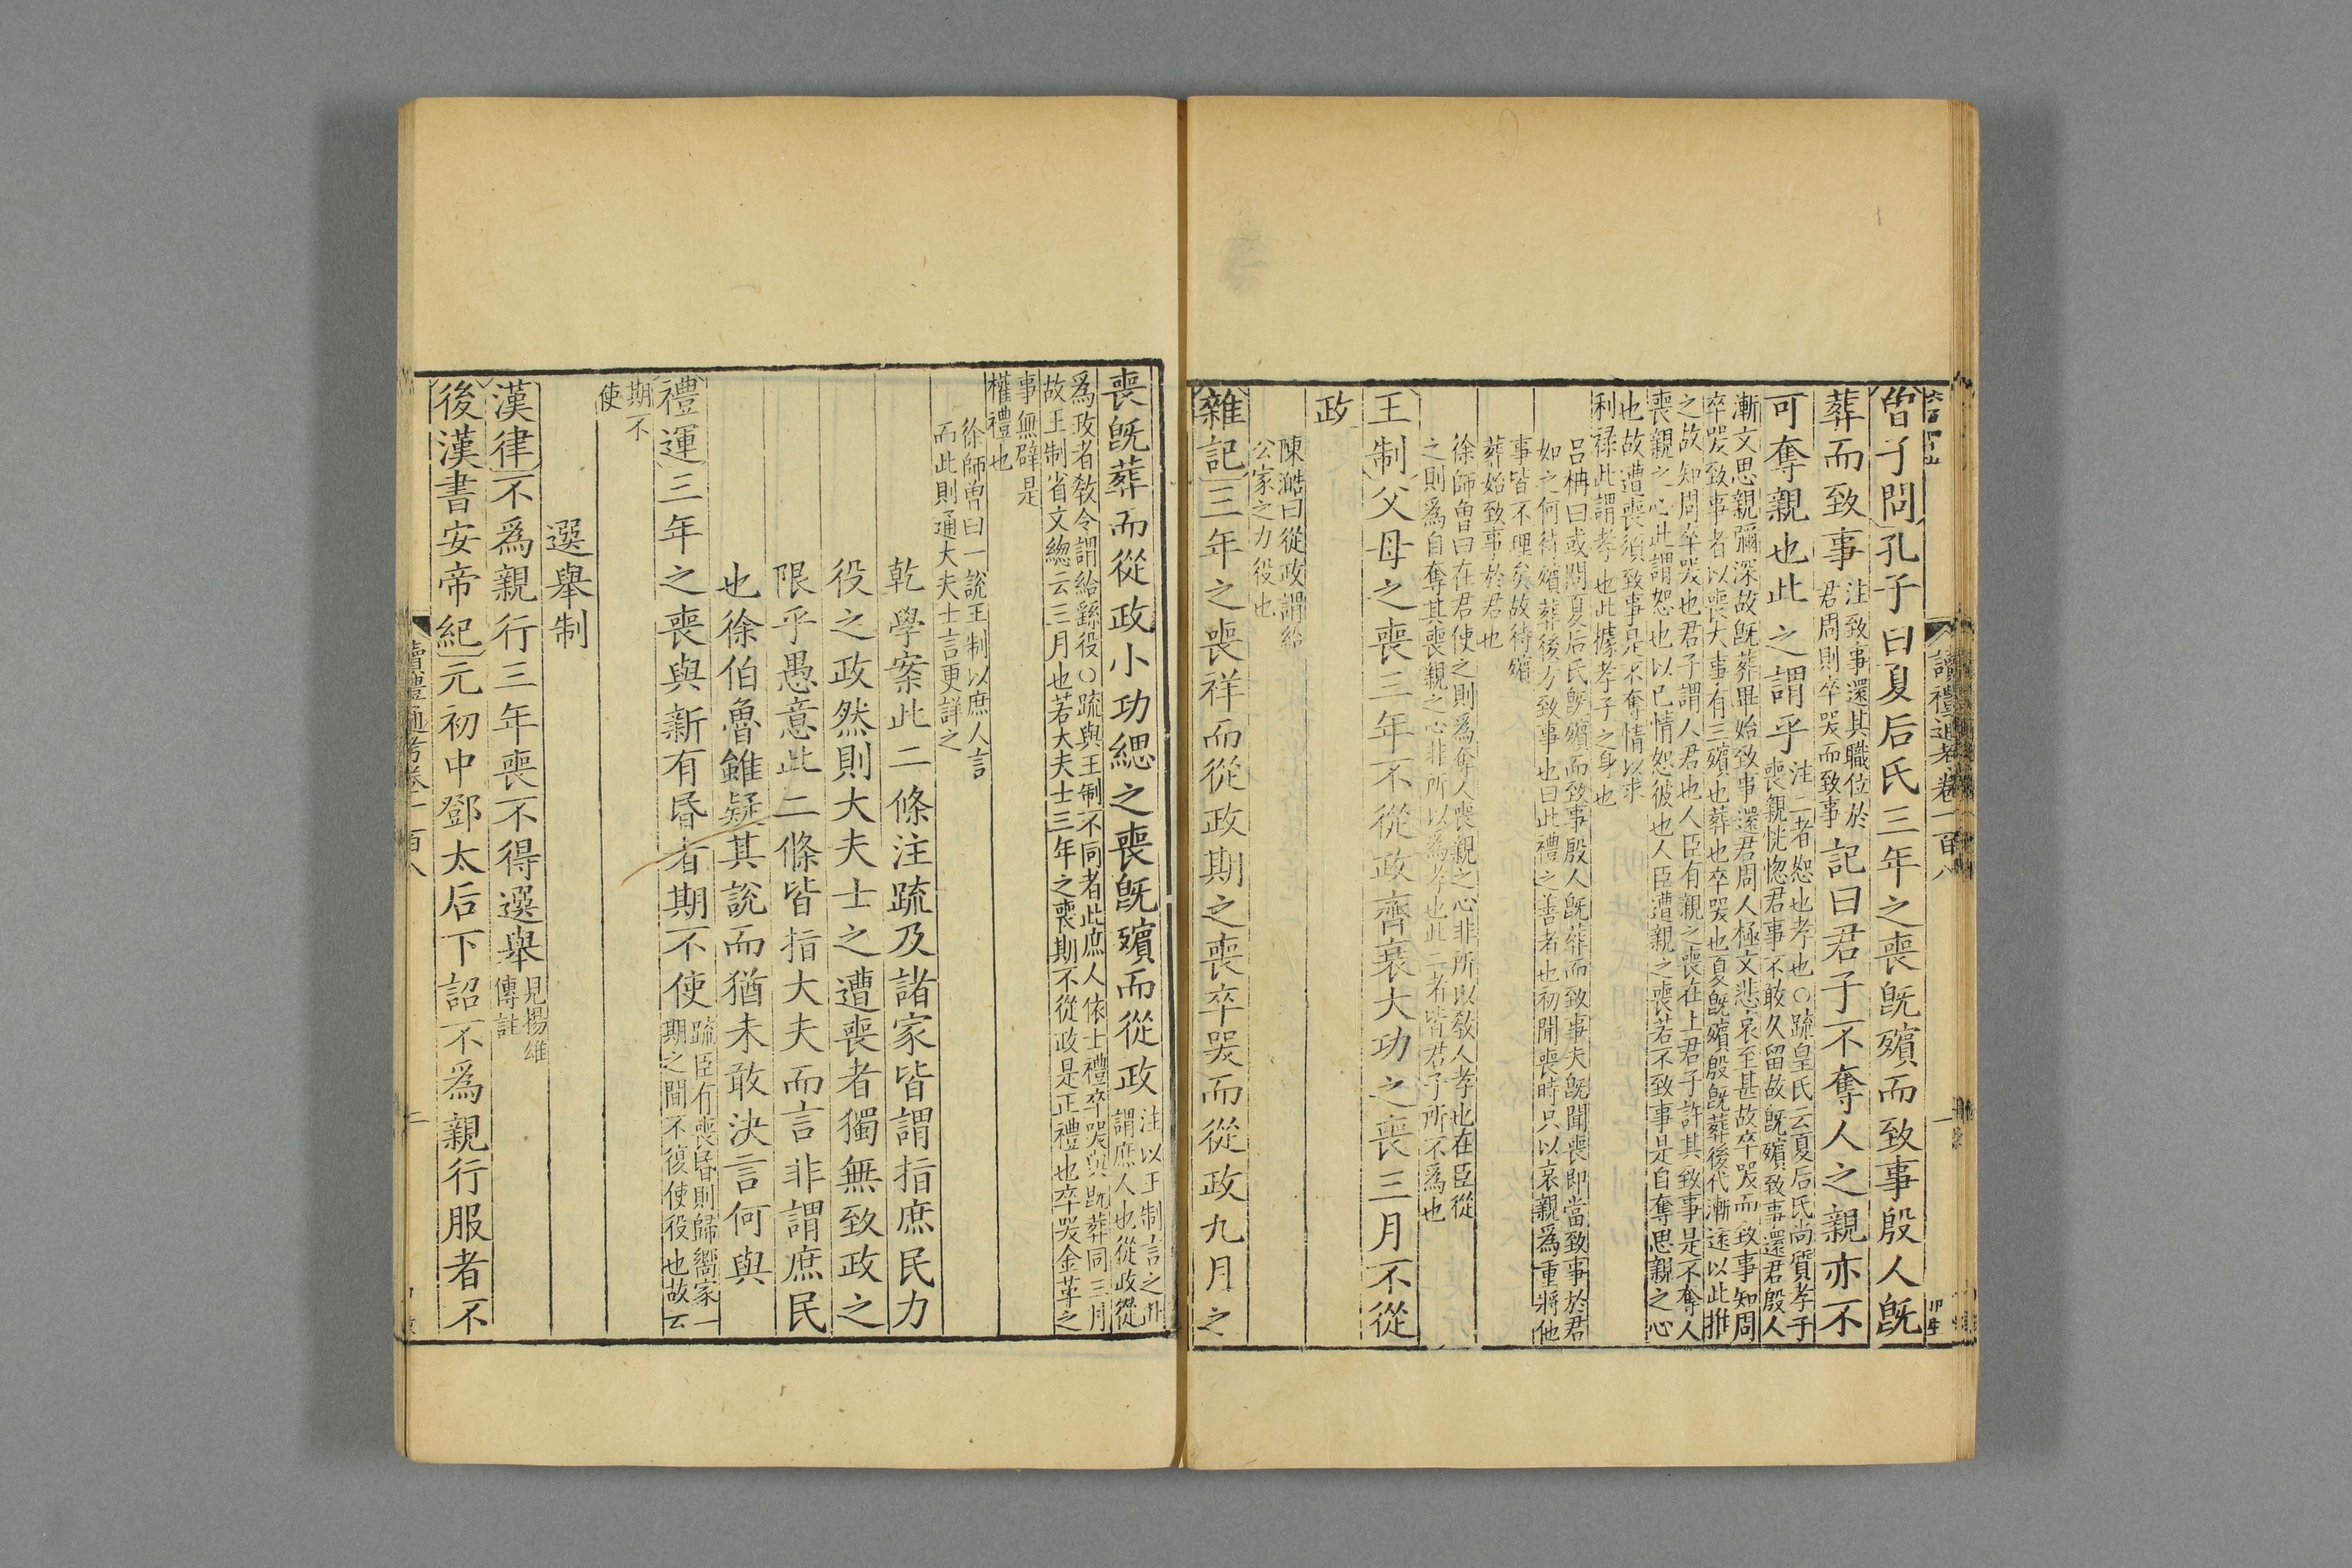 讀禮通考卷一百八
一
曾子問孔子曰夏后氏三年之喪旣殯而致事殷人旣
葬而致事注致事還其職位於君周則卒哭而致事記曰君子不奪人之親亦不
可奪親也此之謂乎注二者恕也孝也○疏皇氏云夏后氏尚質孝子喪親恍惚君事不敢久留故旣殯致事還君殷人
漸文思親彌深故旣葬畢始致事還君周人極文悲哀至甚故卒哭而致事知周
卒哭致事者以喪大事有三殯也葬也卒哭也夏旣殯殷旣葬後代漸遠以此推
之故知周卒哭也君子謂人君也人臣有親之喪在上君子許其致事是不奪人
喪親之心此謂恕也以己情恕彼也人臣遭親之喪若不致事是自奪思親之心
也故遭喪須致事是不奪情以求
利祿此謂孝也此據孝子之身也
呂柟曰或問夏后氏旣殯而致事殷人旣葬而致事夫旣聞喪即當致事於君
如之何待殯葬後方致事也曰此禮之善者也初聞喪時只以哀親爲重將他
事皆不理矣故待殯
葬始致事於君也
徐師曾曰在君使之則爲奪人喪親之心非所以敎人孝也在臣從
之則爲自奪其喪親之心非所以爲孝也此二者皆君子所不爲也
王制父母之喪三年不從政齊衰大功之喪三月不從
政
陳澔曰從政謂給
公家之力役也
雜記三年之喪祥而從政期之喪卒哭而從政九月之
喪旣葬而從政小功緦之喪旣殯而從政注以王制言之此謂庶人也從政從
爲政者敎令謂給繇役○疏與王制不同者此庶人依士禮卒哭與旣葬同三月
故王制省文緫云三月也若大夫士三年之喪期不從政是正禮也卒哭金革之
事無辟是
權禮也
徐師曾曰一說王制以庶人言
而此則通大夫士言更詳之
乾學案此二條注疏及諸家皆謂指庶民力
役之政然則大夫士之遭喪者獨無致政之
限乎愚意此二條皆指大夫而言非謂庶民
也徐伯魯雖疑其說而猶未敢決言何與
禮運三年之喪與新有昏者期不使疏臣有喪昏則歸嚮家一期之間不復使役也故云
期不
使
選舉制
漢律不爲親行三年喪不得選舉見揚雄傳註
後漢書安帝紀元初中鄧太后下詔不爲親行服者不
讀禮通考卷一百八
二